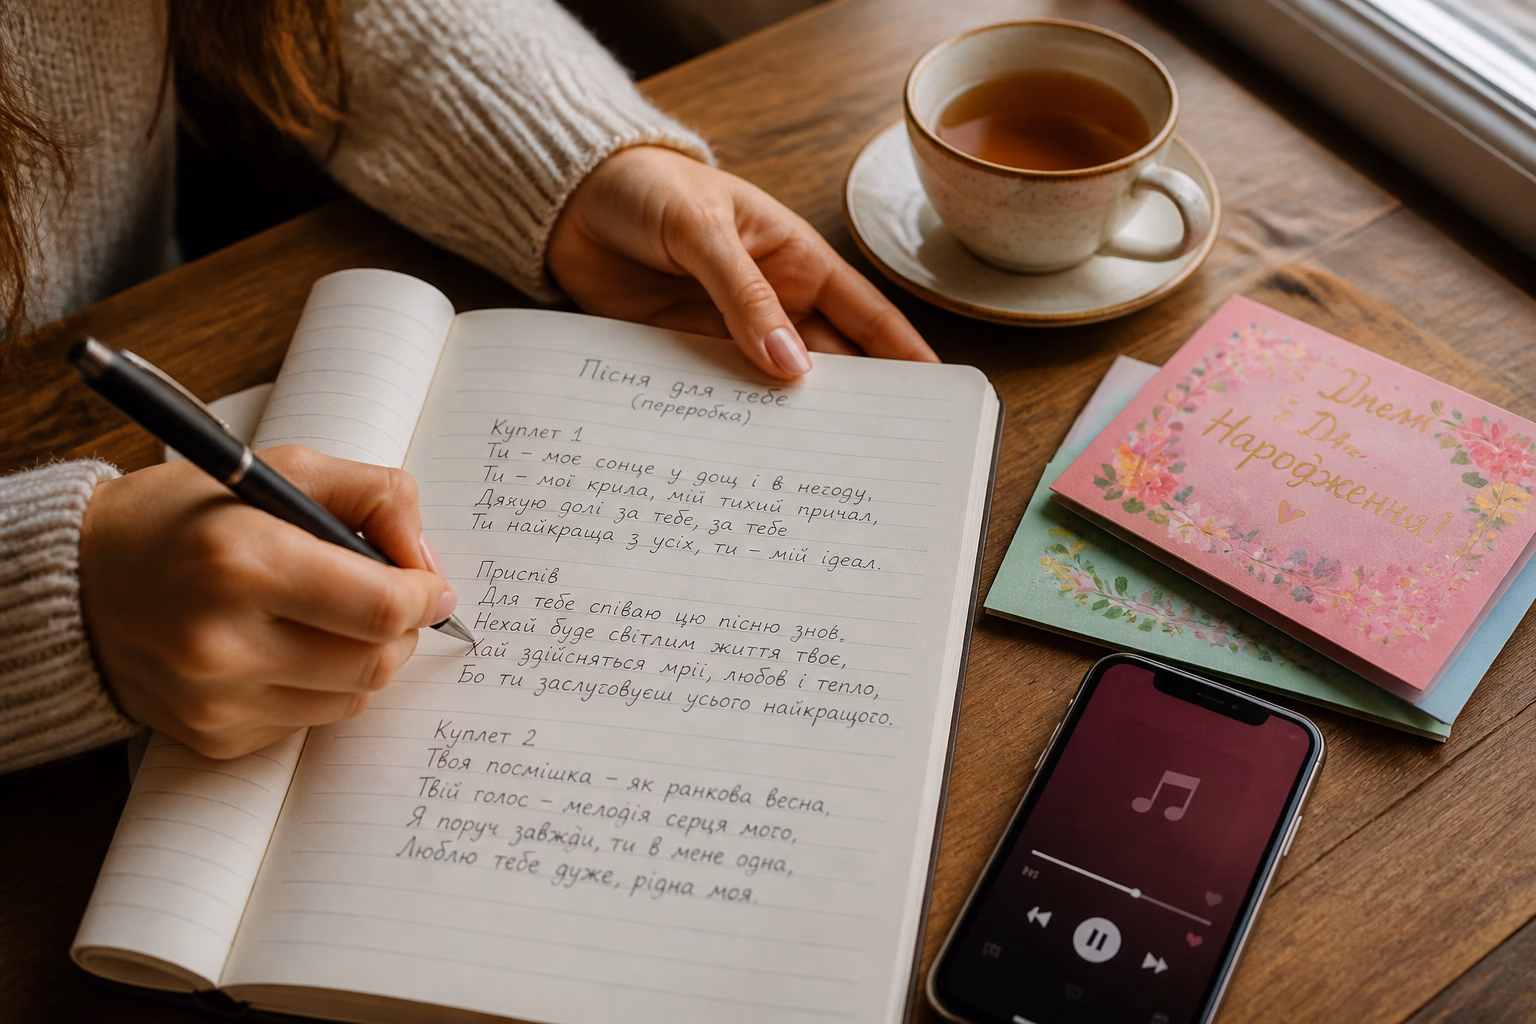 Пісня для тебе
(переробка)
Куплет 1
Ти – моє сонце у дощ і в негоду,
Ти – мої крила, мій тихий причал,
Дякую долі за тебе, за тебе
Ти найкраща з усіх, ти – мій ідеал.
Приспів
Для тебе співаю цю пісню знов,
Нехай буде світлим життя твоє,
Хай здійсняться мрії, любов і тепло,
Бо ти заслуговуєш усього найкращого.
Куплет 2
Твоя посмішка – як ранкова весна,
Твій голос – мелодія серця мого,
Я поруч завжди, ти в мене одна,
Люблю тебе дуже, рідна моя.
Народження!